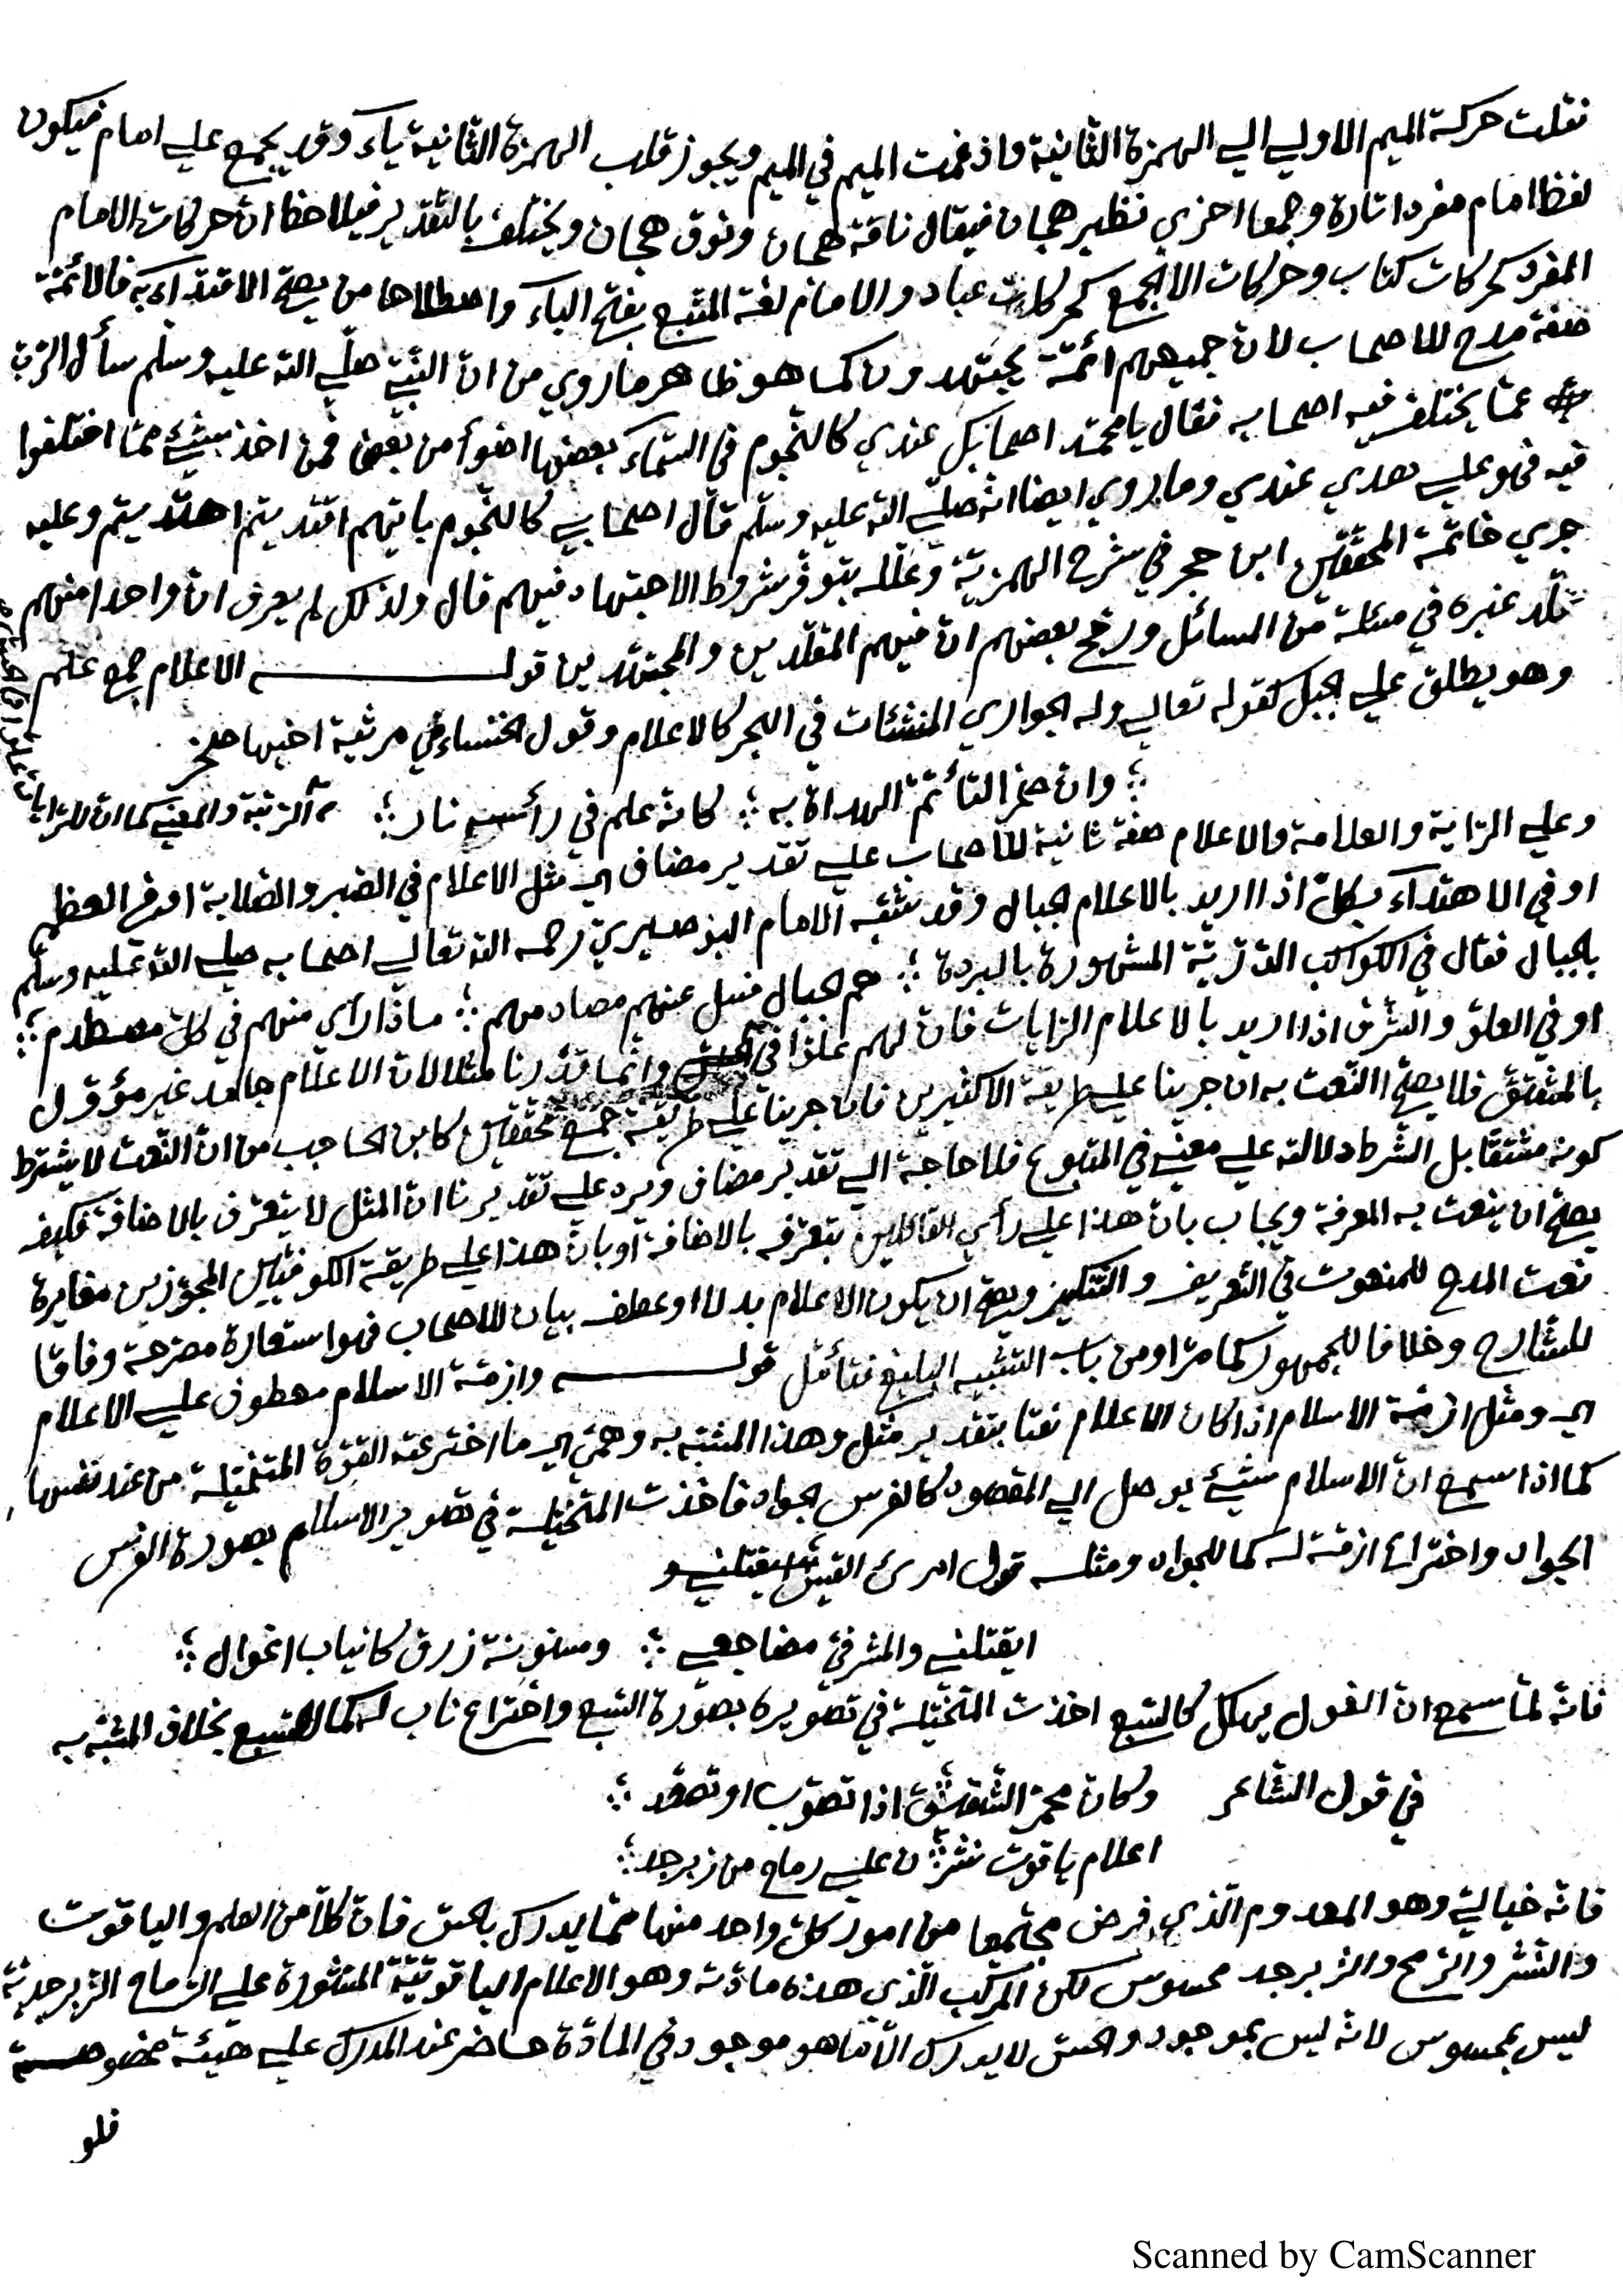 نقلت حركة الميم الاولي الي الهمزة الثانية واذغمت الميم في الميم ويجوز قلب الهمزة الثانية ياۤء وقد يجمع علي امام فيكون
لفظ امام مفردا تارة وجمعا اخري نظير هجان فيقال ناقة هجان ونوق هجان ويختلف بالتقدير فيلاحظ انّ حركات الامام
المفرد كحركات كتاب وحركات الجمع كحركات عباد والامام لغة المتبع بفتح الباۤء واصطلاحا من يصحّ الاقتداۤء به فالائمّة
صفة مدح للاصحاب لانّ جميعهم ائمّة مجتهدون كما هو ظاهر ما روي من انّ النّبيّ صلّي الله عليه وسلّم سأل الرّبّ
عمّا يختلف فيه اصحابه فقال يا محمّد اصحابك عندي كالنّجوم في السّماۤء بعضها اضوأ من بعض فمن اخذ بشئ ممّا اختلفوا
فيه فهو علي هدي عندي وما روي ايضا انّه صلّي الله عليه وسلّم قال اصحابي كالنّجوم بايّهم اقتديتم اهتديتم وعليه
جري خاتمة المحقّقين ابن حجر في شرح الهمزيّة وعلّله بتوفّر شروط الاجتهاد فيهم قال ولذلك لم يعرف انّ واحدا منهم
قلّد غيره في مسئلة من المسائل ورجّح بعضهم انّ فيهم المقلّدين والمجتهدين قوله الاعلام جمع علم
وهو يطلق علي الجبل كقوله تعالي وله الجواري المنشئات في البحر كالاعلام وقول الخنساء في مرثية اخيها صخر
؛ وانّ صخرا لتأتمّ الهداة به ؛ كانّه علم في رأسه نار ؛
وعلي الرّاية والعلامة والاعلام صفة ثانية للاصحاب علي تقدير مضاف اي مثل الاعلام في الصّبر والصّلابة او في العظم
او في الاهتداۤء بكلّ اذا اريد بالاعلام الجبال وقد شبّه الامام البوصيريّ رحمه الله تعالي اصحابه صلي الله عليه وسلّم
بالجبال فقال في الكواكب الدّرّيّة المشهورة بالبردة ؛ هم الجبال فسل عنهم مصادمهم ؛ ماذا راي منهم في كلّ مصطدم ؛
او في العلوّ والشّرف اذا اريد بالاعلام الرّايات فانّ لهم علوّا في وانّما قدّرنا مثلا لانّ الاعلام جامد غير مؤوّل
بالمشتقّ فلا يصحّ النّعت به ان جرينا علي طريقة الاكثرين فان جرينا علي طريقة جمع محقّقين كابن الحاجب من انّ النّعت لا يشترط
كونه مشتقّا بل الشّرط دلالته علي معني في المتبوع فلا حاجة الي تقدير مضاف ويرد علي تقديرنا انّ المثل لا يتعرّف بالاضافة فكيف
يصحّ ان ينعت به المعرفة ويجاب بانّ هذا علي رأي القائلين بتعرّفه بالاضافة او بانّ هذا علي طريقة الكوفيّين المجوّزين مغايرة
نعت المدح للمنعوت في التّعريف والتّنكير ويصحّ ان يكون الاعلام بدلا او عطف بيان للاصحاب فهو استعارة مصرّحة وفاقا
للشّارح وخلافا للجمهور كما مرّ او من باب التّشبيه البليغ فتأمّل قوله وازمّة الاسلام معطوف علي الاعلام
اي ومثل ازمّة الاسلام اذا كان الاعلام نعتا بتقدير مثل وهذا المشبّه به وهميّ اي ما اخترعته القوّة المتخيّلة من عند نفسها
كما اذا سمع انّ الاسلام شئ يوصل الي المقصود كالفرس الجواد فاخذت المتخيّلة في تصوير الاسلام بصورة الفرس
الجواد واختراع ازمّة له كما للجواد ومثله قول امرئ القيس
ايقتلني والمشرفيّ مضاجعي ؛ ومسنونة زرق كانياب اغوال ؛
فانّه لمّا سمع انّ الغول يهلك كالسّبع اخذت المتخيّلة في تصويره بصورة السّبع واختراع ناب له كما للسّبع بخلاف المشبّه به
في قول الشّاعر وكانّ محمرّ الشّقيق اذا تصوّب او تصعّد ؛
اعلام ياقوت نشرن علي رماح من زبرجد ؛
فانّه خياليّ وهو المعدوم الّذي فرض مجتمعا من امور كلّ واحد منها ممّا يدرك بالحسّ فانّ كلّا من العلم والياقوت
والنّشر والرّمح والزّبرجد محسوس لكن المركّب الّذي هذه مادّته وهو الاعلام الياقوتيّة المنشورة علي الرّماح الزّبرجديّة
ليس بمحسوس لانّه ليس بموجود والحسّ لا يدرك الّا ما هو موجود في المادّة حاضر عند المدرك علي هيئة مخصوصة
فلو
Scanned by CamScanner